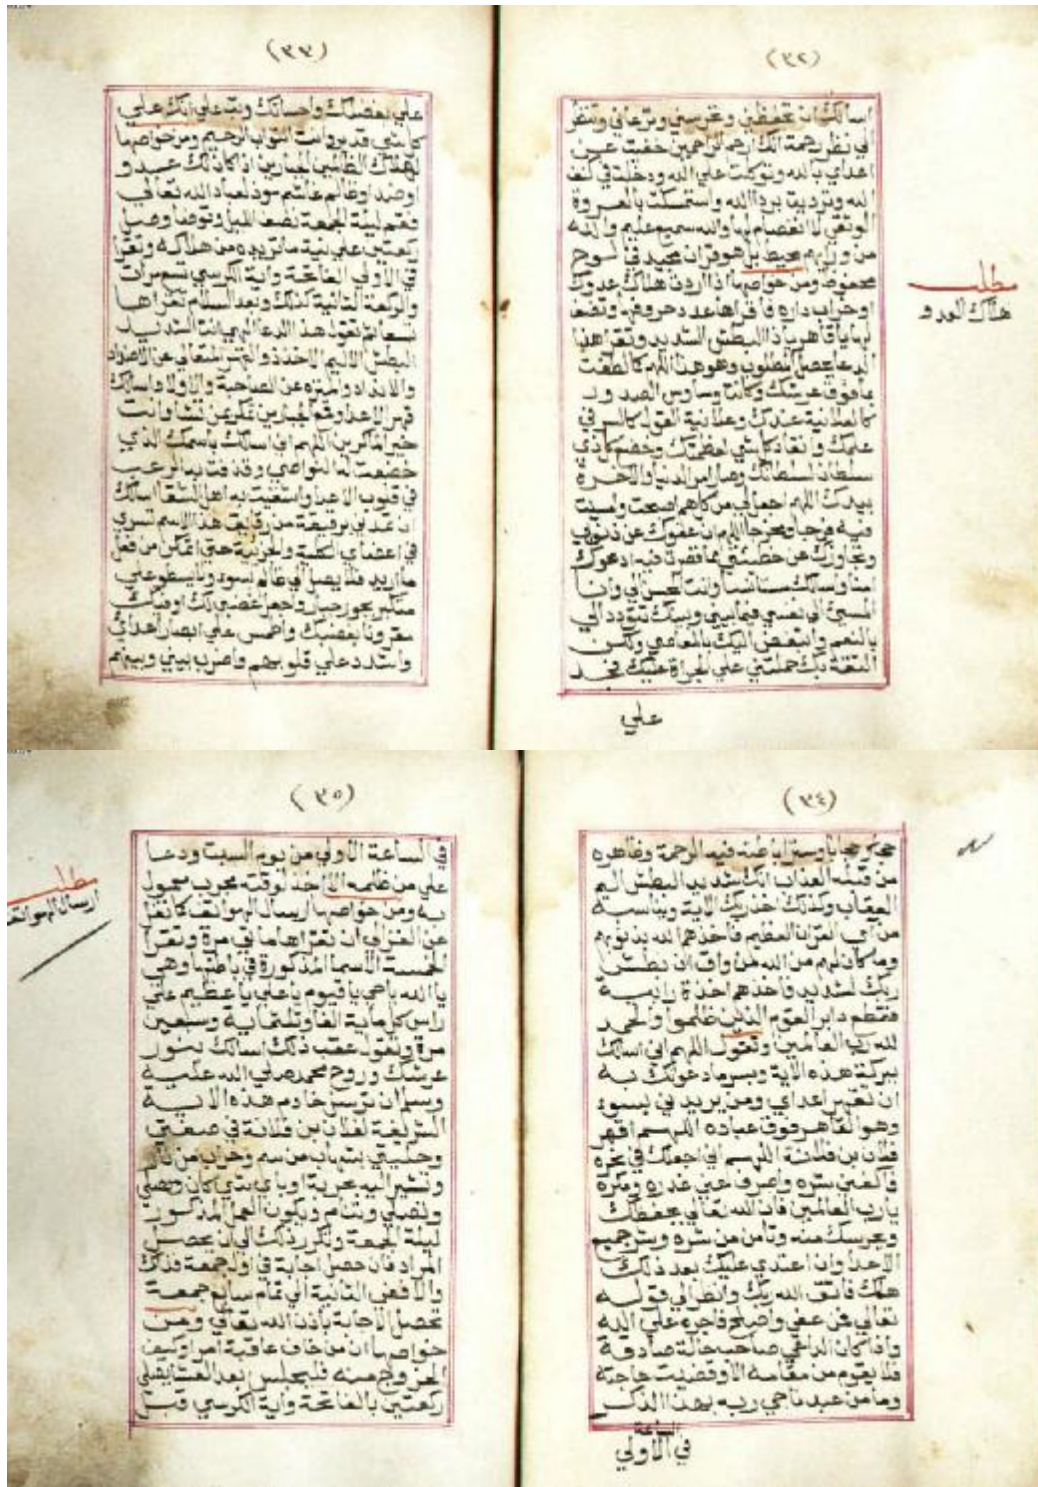 (٣٢)
اسالك ان تحفظني وتحرسني وترعاني وتنظر
الي نظر رحمة انك ارحم الراحمين خفت عن
اعداي بالله وتوكلت علي الله ودخلت في كنف
الله وترديت بردا الله واستمسكت بالعروة
الوثقي لا انفصام لها والله سميع عليم والله
من ورايهم محيط بل هو قران مجيد في لوح
محفوظ ومن خواصها اذا اردت هلاك عدوك
او خراب داره فاقراها عدد حروفها وتضف
لها يا قاهر يا ذا البطش الشديد وتقرا هذا
الدعا يحصل المطلوب وهو هذا اللهم كما لطفت
بما فوق عرشك وكانت وساوس الصدور
كالعلانية عندك وعلانية القول كالسر في
علمك وانقاد كل شي لعظمتك وخضع كل ذي
سلطان لسلطانك وصار امر الدنيا والاخرة
بيدك اللهم اجعل لي من كل هم اصبحت وامسيت
فيه فرجا ومخرجا اللهم ان عفوك عن ذنوبي
وتجاوزك عن خطيئتي مما قصرت فيه ادعوك
امنا واسالك مستانسا وانت المحسن الي وانا
المسيئ الي نفسي فيما بيني وبينك تتودد الي
بالنعم واتبغض اليك بالمعاصي ولكن
الثقة بك حملتني علي الجراة عليك فجد
علي
مطلب
هلاك العدو
(٣٣)
علي بفضلك واحسانك وتب علي انك علي
كل شي قدير وانت التواب الرحيم ومن خواصها
لهلاك الظالمين الجبارين اذا كان لك عدو
او ضد او ظالم غاشم موذ لعباد الله تعالي
فقم ليلة الجمعة نصف الليل وتوضا وصل
ركعتين علي نية ما تريده من هلاكه وتقرا
في الاولي الفاتحة واية الكرسي تسع مرات
والركعة الثانية كذلك وبعد السلام تقراها
تسعا ثم تقول هذا الدعا اللهم انت الشديد
البطش الاليم الاخذ ذو القهر المتعالي عن الاضداد
والانداد والمنزه عن الصاحبة والاولاد اسالك
قهر الاعدا وقمع الجبارين تمكر بمن تشا وانت
خير الماكرين اللهم اني اسالك باسمك الذي
خضعت له النواصي وقذفت به الرعب
في قلوب الاعدا واشقيت به اهل الشقا اسالك
ان تمدني برقيقة من رقايق هذا الاسم تسري
في اعضاي الكلية والجزئية حتي اتمكن من فعل
ما اريد فلا يصل الي ظالم بسوء ولا يسطو علي
متكبر بجور جبار واجعل غضبي لك وفيك
مقرونا بغضبك واطمس علي ابصار اعداي
واشدد علي قلوبهم واضرب بيني وبينهم
(٣٤)
حجابا وسترا باطنه فيه الرحمة وظاهره
من قبله العذاب انك شديد البطش اليم
العقاب وكذلك اخذ ربك الاية ويناسبه
من اي القران العظيم فاخذهم الله بذنوبهم
وما كان لهم من الله من واق ان بطش
ربك لشديد فاخذهم اخذة رابية
فقطع دابر القوم الذين ظلموا والحمد
لله رب العالمين او تقول اللهم اني اسالك
ببركة هذه الاية وبسر ما دعوتك به
ان تقهر اعداي ومن يريد بي بسوء
وهو القاهر فوق عباده اللهم اقهر
فلان بن فلانة اللهم اني اجعلك في نحره
فاكفني شره واصرف عني غدره ومكره
يا رب العالمين فان الله تعالي يحفظك
ويحرسك منه وتامن من شره وشر جميع
الاعدا وان اعتدي عليك بعد ذلك
هلك فاتق الله ربك وانظر الي قوله
تعالي فمن عفي واصلح فاجره علي الله
واذا كان الداعي صاحب حالة صادقة
فلا يقوم من مقامه الا وقضيت حاجته
وما من عبد ناجي ربه بهذا الذكر
الساعة
في الاولي
(٣٥)
في الساعة الاولي من يوم السبت ودعا
علي من ظلمه الا اخذ لوقته مجرب معمول
به ومن خواصها ارسال الهواتف كما نقل
عن الغزالي ان تقراها ماتي مرة وتقرا
الخمسة الاسما المذكورة في باطنها وهي
يا الله يا حي يا قيوم يا علي يا عظيم علي
راس كل ماية الفا وثلثماية وسبعين
مرة وتقول عقب ذلك اسالك بنور
عرشك وروح محمد صلي الله عليه
وسلم ان ترسل خادم هذه الاية
الشريفة لفلان بن فلانة في صفتي
وحليتي بشهاب من سم وحراب من نار
وتشير اليه بحربة وباي شي كان وتصلي
وتصلي وتنام ويكون العمل المذكور
ليلة الجمعة وتكرر ذلك الي ان يحصل
المراد فان حصل اجابة في اول جمعة فذلك
والا ففي الثانية الي تمام سابع جمعة
تحصل الاجابة باذن الله تعالي ومن
خواصها ان من خاف عاقبة امر وكيف
الخروج منه فليجلس بعد العشا يصلي
ركعتين بالفاتحة واية الكرسي قبل
مطلب
ارسال الهواتف